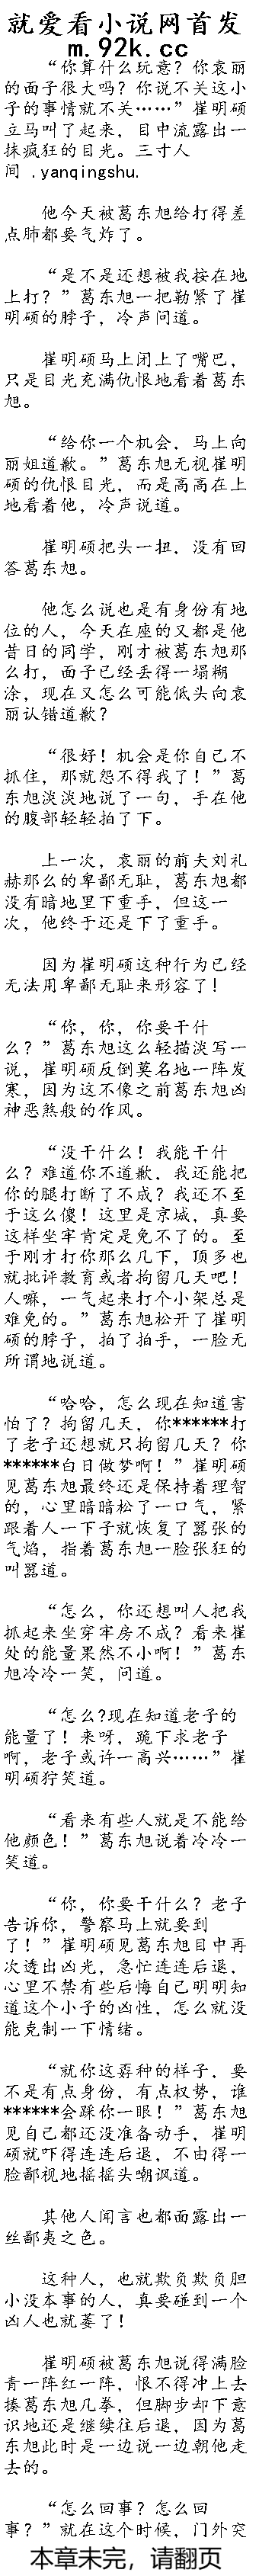 就爱看小说网首发
m.92k.cc
“你算什么玩意？你袁丽
的面子很大吗？你说不关这小
子的事情就不关……”崔明硕
立马叫了起来，目中流露出一
抹疯狂的目光。三寸人
间 .yanqingshu.
他今天被葛东旭给打得差
点肺都要气炸了.
“是不是还想被我按在地
上打？”葛东旭一把勒紧了崔
明硕的脖子，冷声问道。
崔明硕马上闭上了嘴巴，
只是目光充满仇恨地看着葛东
旭。
“给你一个机会，马上向
丽姐道歉。”葛东旭无视崔明
硕的仇恨目光，而是高高在上
地看着他，冷声说道。
崔明硕把头一扭，没有回
答葛东旭。
他怎么说也是有身份有地
位的人，今天在座的又都是他
昔日的同学，刚才被葛东旭那
么打，面子已经丢得一塌糊
涂，现在又怎么可能低头向袁
丽认错道歉？
“很好！机会是你自己不
抓住，那就怨不得我了！”葛
东旭淡淡地说了一句，手在他
的腹部轻轻拍了下。
上一次，袁丽的前夫刘礼
赫那么的卑鄙无耻，葛东旭都
没有暗地里下重手，但这一
次，他终于还是下了重手。
因为崔明硕这种行为已经
无法用卑鄙无耻来形容了！
“你，你，你要干什
么？”葛东旭这么轻描淡写一
说，崔明硕反倒莫名地一阵发
寒，因为这不像之前葛东旭凶
神恶煞般的作风。
“没干什么！我能干什
么？难道你不道歉，我还能把
你的腿打断了不成？我还不至
于这么傻！这里是京城，真要
这样坐牢肯定是免不了的。至
于刚才打你那么几下，顶多也
就批评教育或者拘留几天吧！
人嘛，一气起来打个小架总是
难免的。”葛东旭松开了崔明
硕的脖子，拍了拍手，一脸无
所谓地说道。
“哈哈，怎么现在知道害
怕了？拘留几天，你******打
了老子还想就只拘留几天？你
******白日做梦啊！”崔明硕
见葛东旭最终还是保持着理智
的，心里暗暗松了一口气，紧
跟着人一下子就恢复了嚣张的
气焰，指着葛东旭一脸张狂的
叫嚣道。
“怎么，你还想叫人把我
抓起来坐穿牢房不成？看来崔
处的能量果然不小啊！”葛东
旭冷冷一笑，问道。
“怎么?现在知道老子的
能量了！来呀，跪下求老子
啊，老子或许一高兴……”崔
明硕狞笑道。
“看来有些人就是不能给
他颜色！”葛东旭说着冷冷一
笑道。
“你，你要干什么？老子
告诉你，警察马上就要到
了！”崔明硕见葛东旭目中再
次透出凶光，急忙连连后退，
心里不禁有些后悔自己明明知
道这个小子的凶性，怎么就没
能克制一下情绪。
“就你这孬种的样子，要
不是有点身份，有点权势，谁
******会踩你一眼！”葛东旭
见自己都还没准备动手，崔明
硕就吓得连连后退，不由得一
脸鄙视地摇摇头嘲讽道。
其他人闻言也都面露出一
丝鄙夷之色。
这种人，也就欺负欺负胆
小没本事的人，真要碰到一个
凶人也就萎了！
崔明硕被葛东旭说得满脸
青一阵红一阵，恨不得冲上去
揍葛东旭几拳，但脚步却下意
识地还是继续往后退，因为葛
东旭此时是一边说一边朝他走
去的。
“怎么回事？怎么回
事？”就在这个时候，门外突
本章未完，请翻页